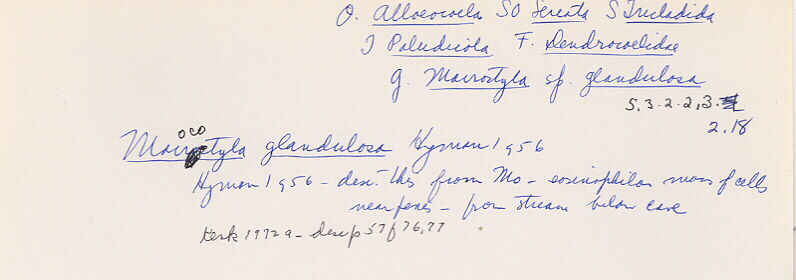 O. Alloeocoela SO Seriata S Tricladida
I Paludicola F. Dendrocoelidae
g. Macrostyla sp. glandulosa
5.3.2.2.3.
2.18
oco
Macrostyla glandulosa Hyman 1956
Hyman 1956 - desc. this from Mo - eosinophilous mass of cells
near penes - from stream below cave
Kenk 1972a - desc p 57 f 76,77